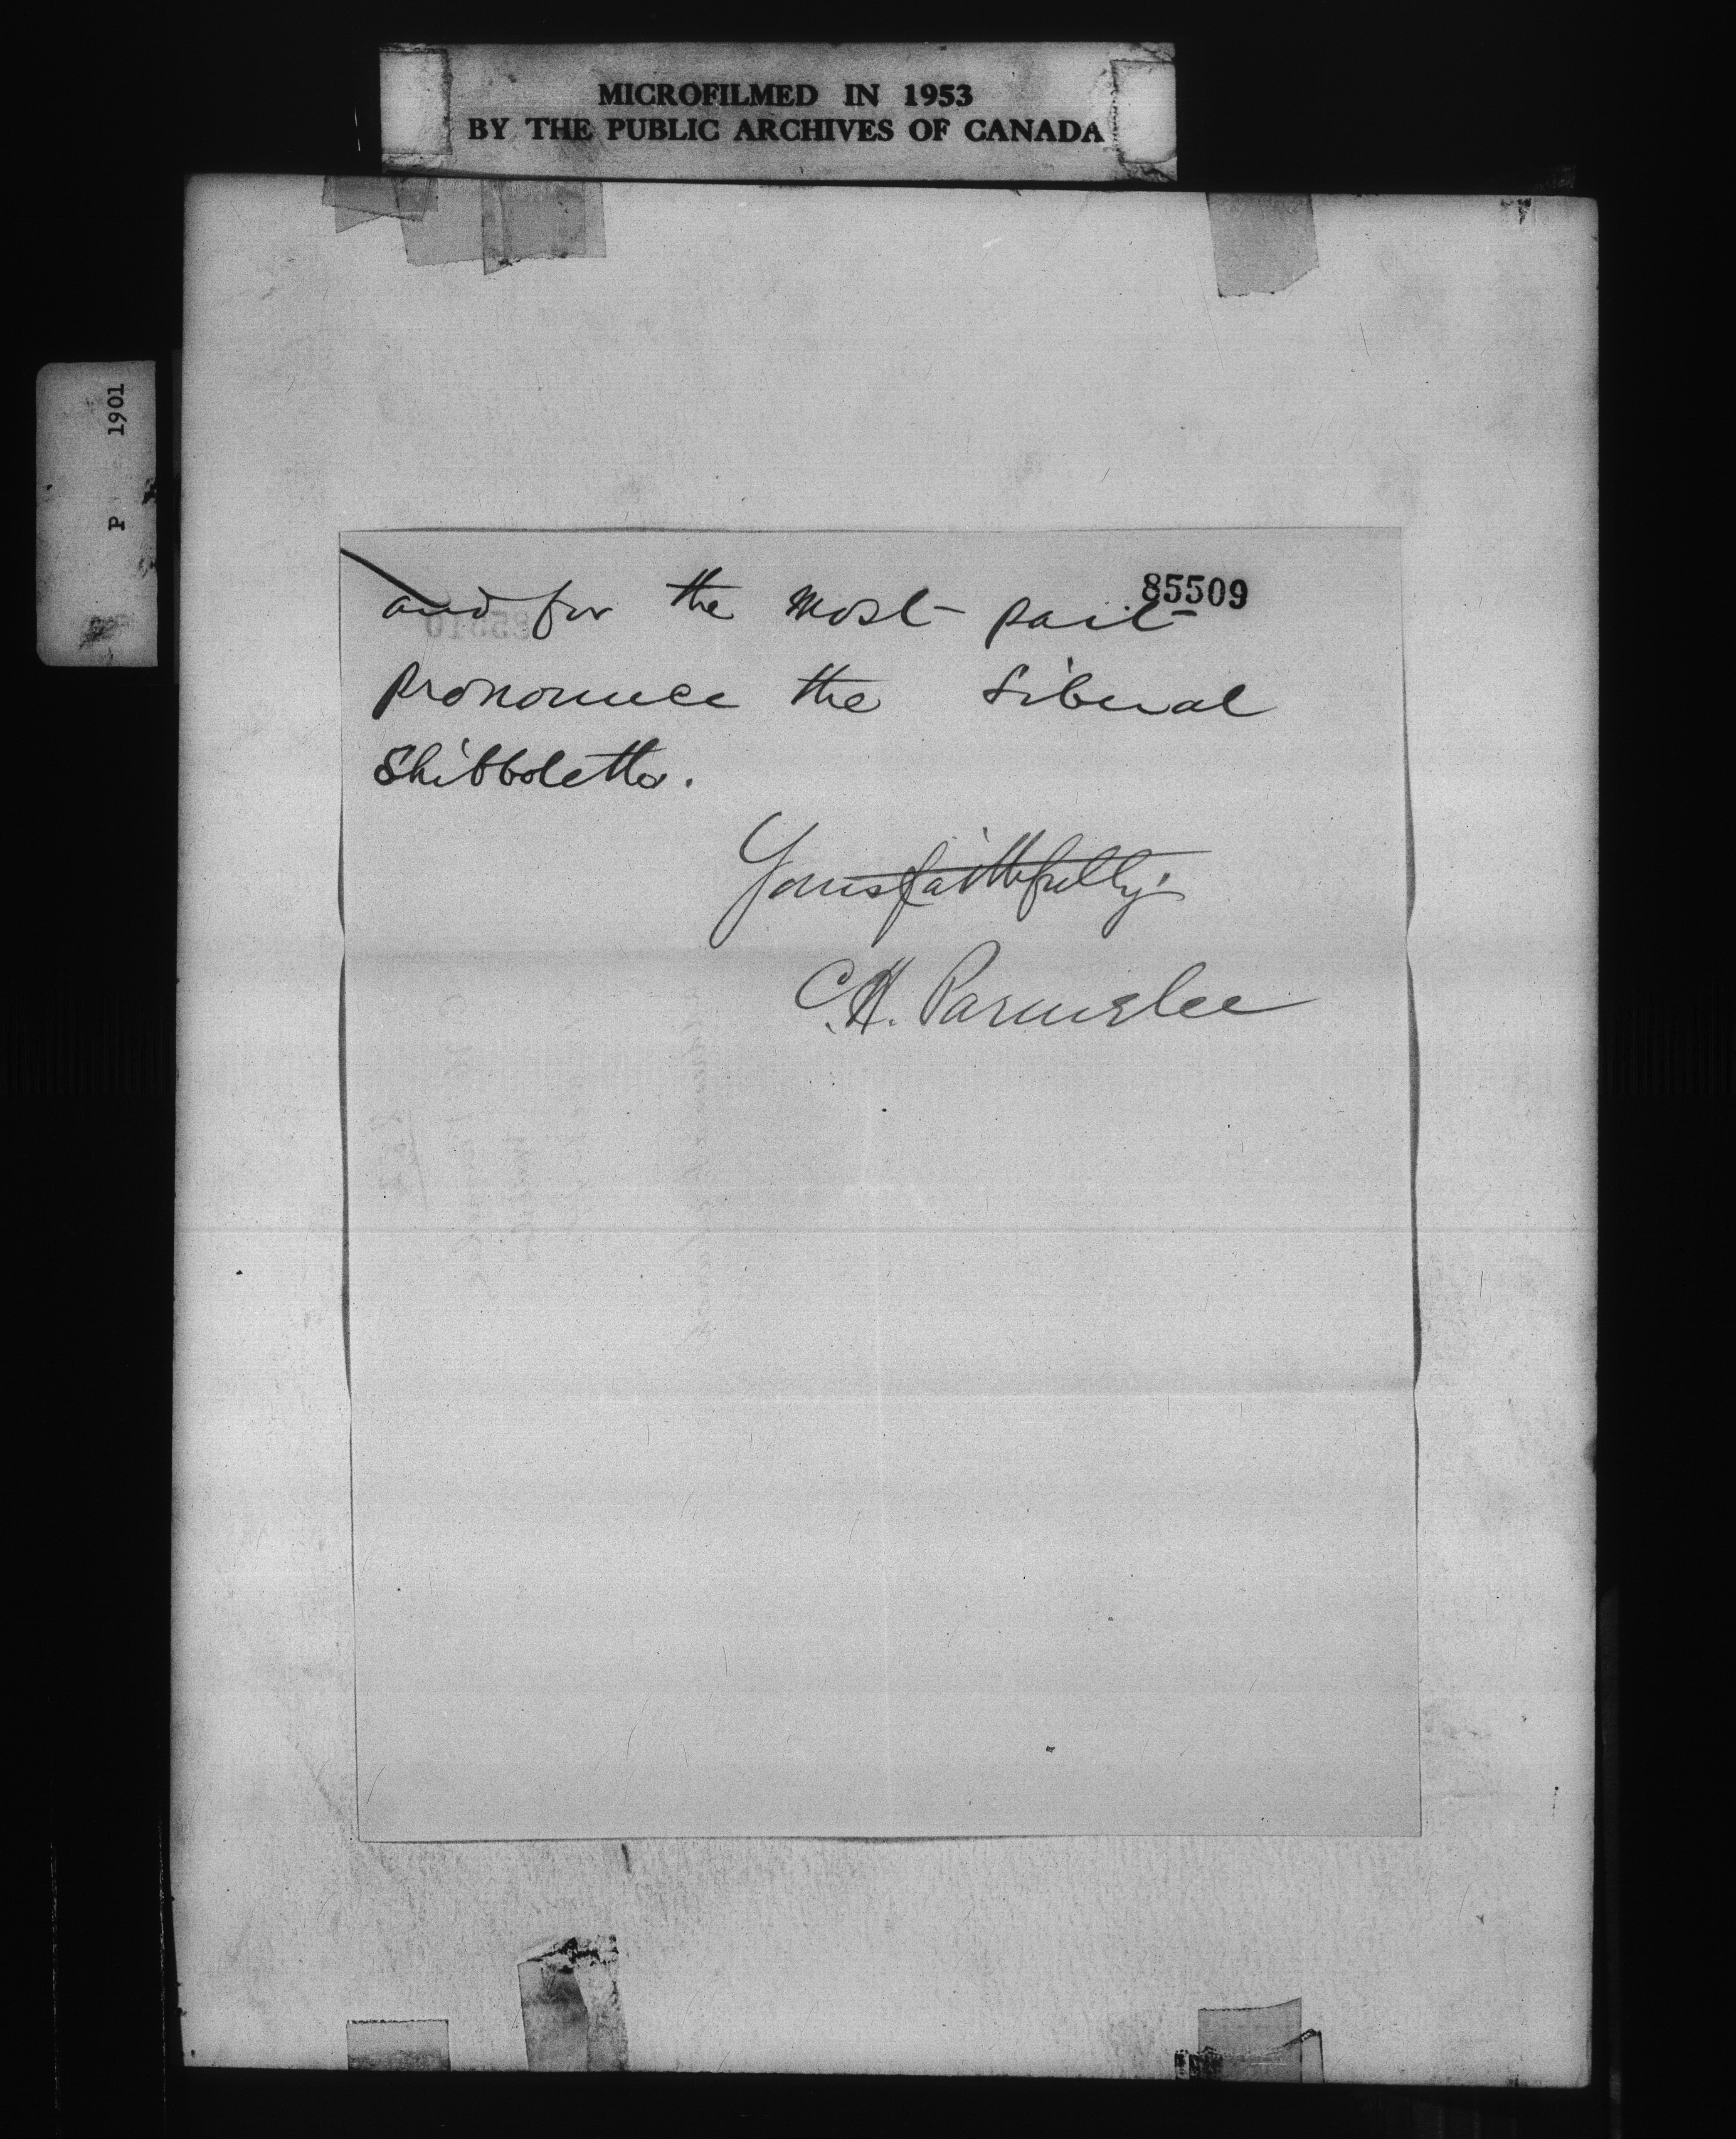 MICROFILMED IN 1953
BY THE PUBLIC ARCHIVES OF CANADA
P 1901
85509
and for the most part
pronounce the Liberal
Shibboleths.
Yours faithfully,
C.H. Parmelee